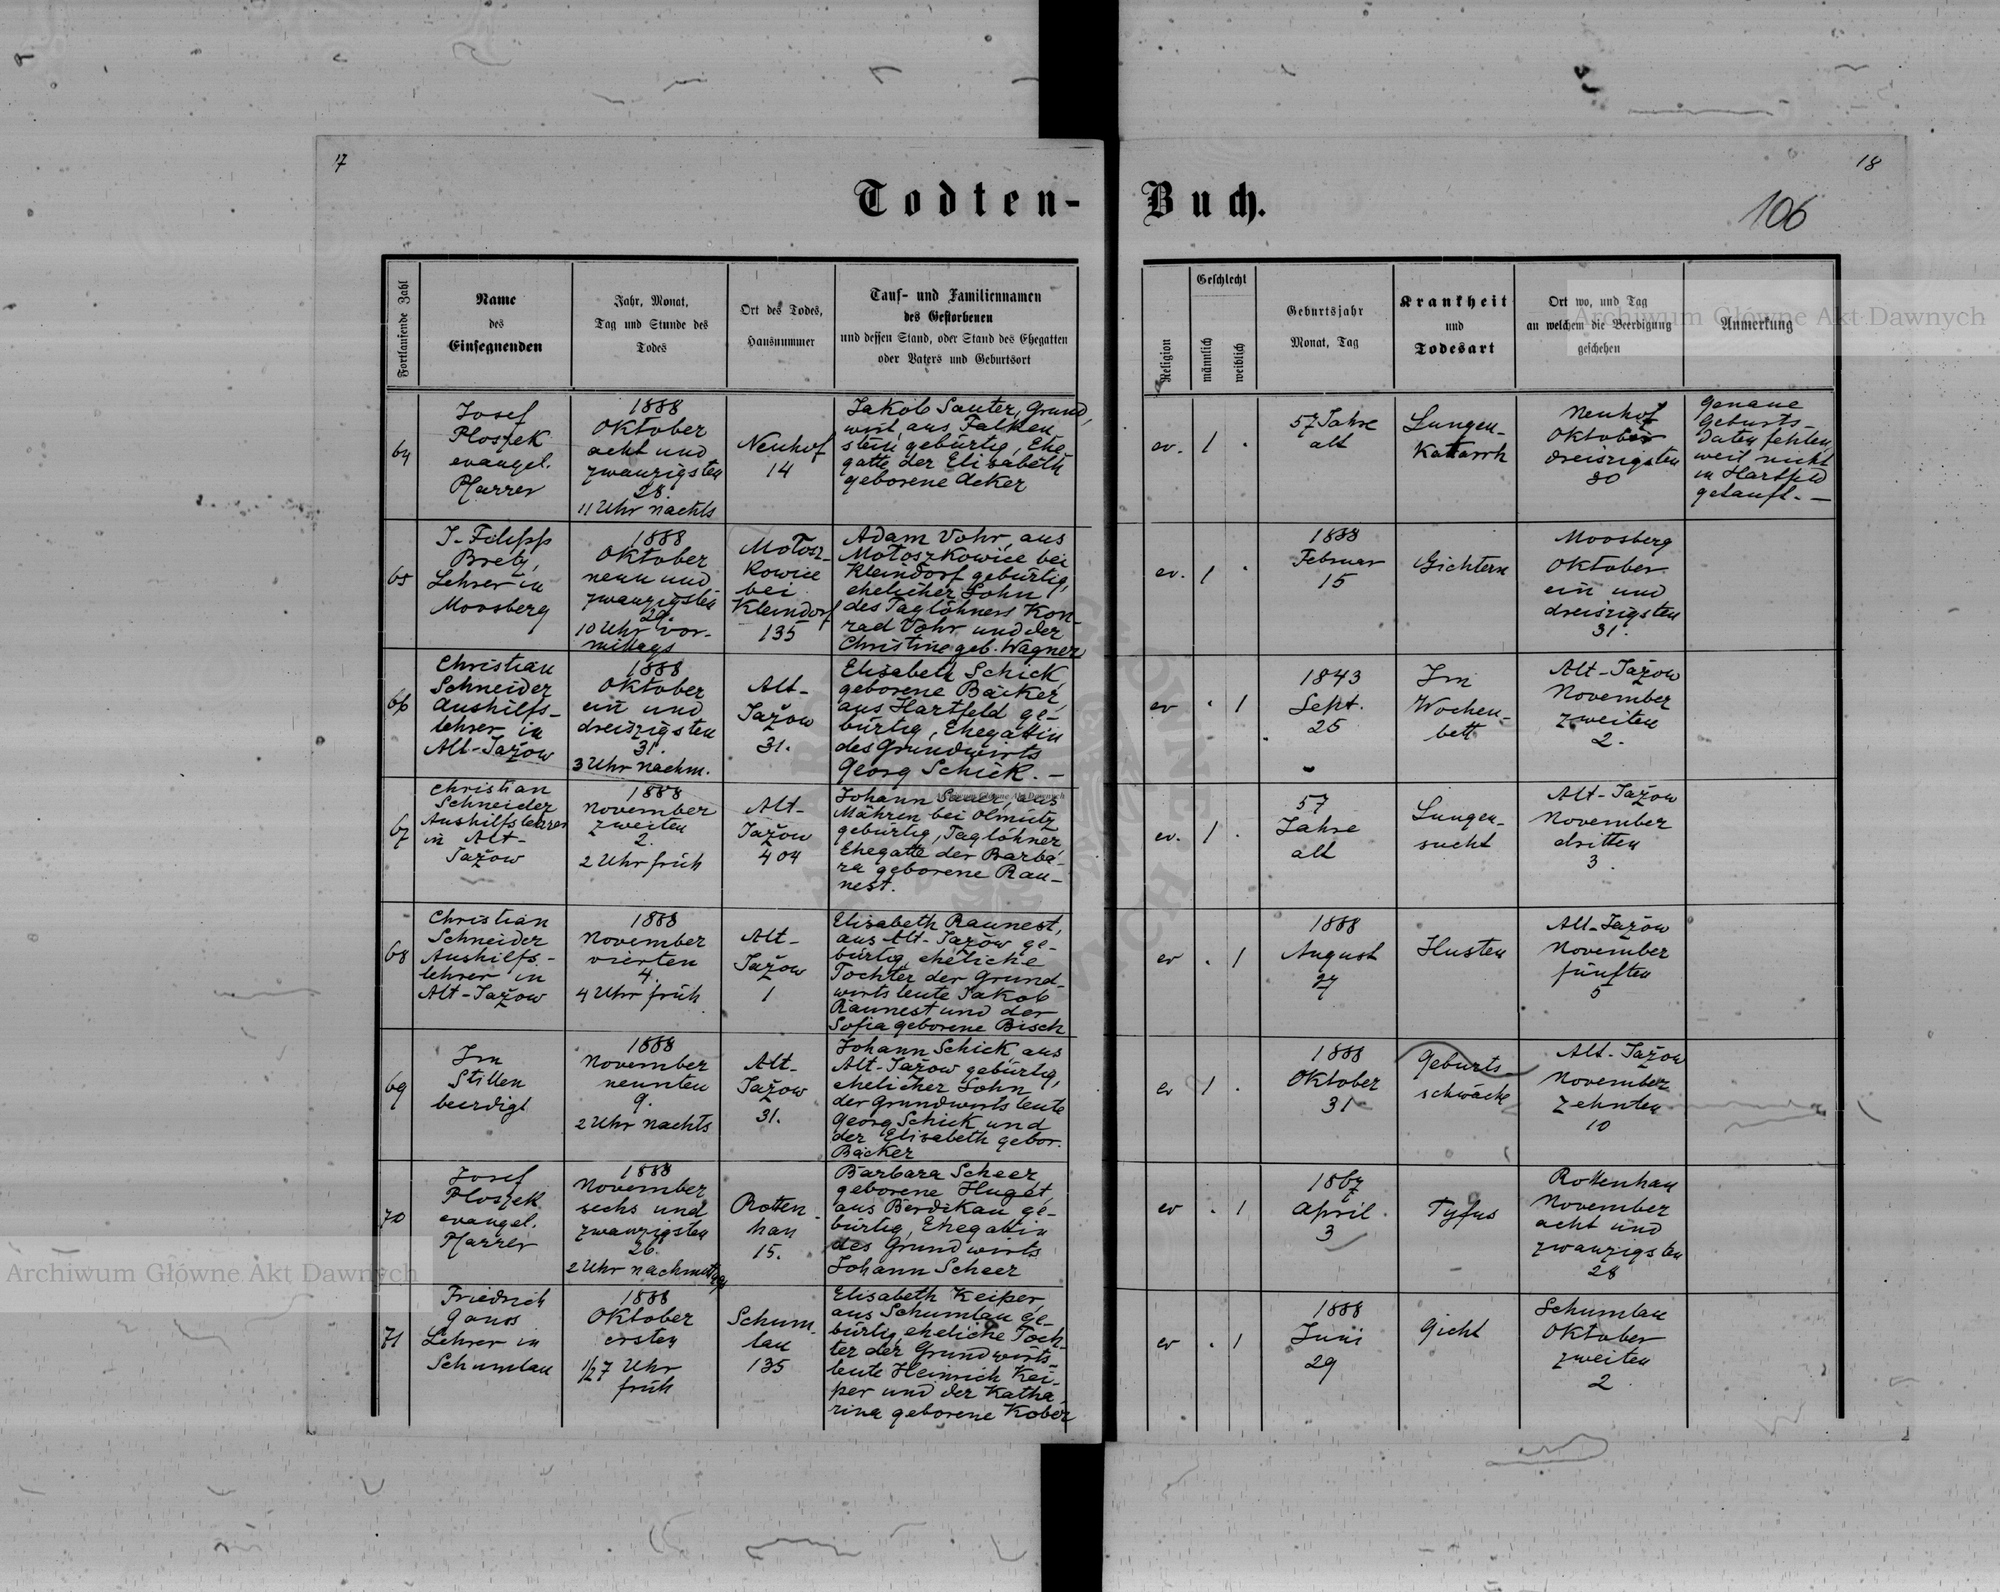 17
18
Todten-Buch.
106
Fortlaufende Zahl
Name
des
Einsegnenden
Jahr, Monat,
Tag und Stunde des
Todes
Ort des Todes,
Hausnummer
Tauf- und Familiennamen
des Gestorbenen
und dessen Stand, oder Stand des Ehegatten
oder Vaters und Geburtsort
Religion
Geschlecht
männlich
weiblich
Geburtsjahr
Monat, Tag
Krankheit
und
Todesart
Ort wo, und Tag
an welchem die Beerdigung
geschehen
Anmerkung
64
Josef
Ploszek
evangel.
Pfarrer
1888
Oktober
acht und
zwanzigsten
28.
11 Uhr nachts
Neuhof
14
Jakob Sauter, Grund
wirt, aus Falken
stein gebürtig, Ehe
gatte der Elisabeth
geborene Acker
ev.
1
.
57 Jahre
alt
Lungen-
Katarrh
Neuhof
Oktober
dreiszigsten
30
Genaue
Geburts-
daten fehlen,
weil nicht
in Hartfeld
getauft. —
65
J. Filipp
Bretz,
Lehrer in
Moosberg
1888
Oktober
neun und
zwanzigsten
29.
10 Uhr vor-
mittags
Motosz-
kowice
bei
Kleindorf
135
Adam Vohr, aus
Motoszkowice bei
Kleindorf gebürtig,
ehelicher Sohn
des Taglöhners Kon-
rad Vohr und der
Christine geb. Wagner
ev.
1
.
1888
Februar
15
Gichtern
Moosberg
Oktober
ein und
dreiszigsten
31.
66
Christian
Schneider
Aushilfs-
lehrer in
Alt-Jažow
1888
Oktober
ein und
dreiszigsten
31.
3 Uhr nachm.
Alt-
Jažow
31.
Elisabeth Schick,
geborene Bäcker,
aus Hartfeld ge-
bürtig, Ehegattin
des Grundwirts
Georg Schick. —
ev
.
1
1843
Sept.
25
Im
Wochen-
bett
Alt-Jažow
November
zweiten
2.
67
Christian
Schneider
Aushilfslehrer
in Alt-
Jažow
1888
November
zweiten
2.
2 Uhr früh
Alt-
Jažow
404
Johann Sauer, aus
Mähren bei Olmütz
gebürtig, Taglöhner,
Ehegatte der Barba-
ra geborene Rau-
nest.
ev.
1
.
57
Jahre
alt
Lungen-
sucht
Alt-Jažow
November
dritten
3.
68
Christian
Schneider
Aushilfs-
lehrer in
Alt-Jažow
1888
November
vierten
4.
4 Uhr früh
Alt-
Jažow
1
Elisabeth Raunest,
aus Alt-Jažow ge-
bürtig, eheliche
Tochter der Grund-
wirtsleute Jakob
Raunest und der
Sofia geborene Bisch
ev
.
1
1888
August
27
Husten
Alt-Jažow
November
fünften
5
69
Im
Stillen
beerdigt
1888
November
neunten
9.
2 Uhr nachts
Alt-
Jažow
31.
Johann Schick, aus
Alt-Jažow gebürtig,
ehelicher Sohn
der Grundwirtsleute
Georg Schick und
der Elisabeth gebor.
Bäcker
ev
1
.
1888
Oktober
31
Geburts-
schwäche
Alt-Jažow
November
zehnten
10
70
Josef
Ploszek
evangel.
Pfarrer
1888
November
sechs und
zwanzigsten
26.
2 Uhr nachmittags
Rotten-
han
15.
Barbara Scheer
geborene Huget,
aus Berdikau ge-
bürtig, Ehegattin
des Grundwirts
Johann Scheer
ev
.
1
1867
April
3
Tyfus
Rottenhan
November
acht und
zwanzigsten
28
71
Friedrich
Lehrer in
Schumlau
1888
Oktober
ersten
1/27 Uhr
früh
Schum-
lau
135
Elisabeth Keiper,
aus Schumlau ge-
bürtig, eheliche Toch-
ter der Grundwirts-
leute Heinrich Kei-
per und der Katha-
rina geborene Kober
ev
.
1
1888
Juni
29
Gicht
Schumlau
Oktober
zweiten
2
Archiwum Główne Akt Dawnych
Archiwum Główne Akt Dawnych
Archiwum Główne Akt Dawnych